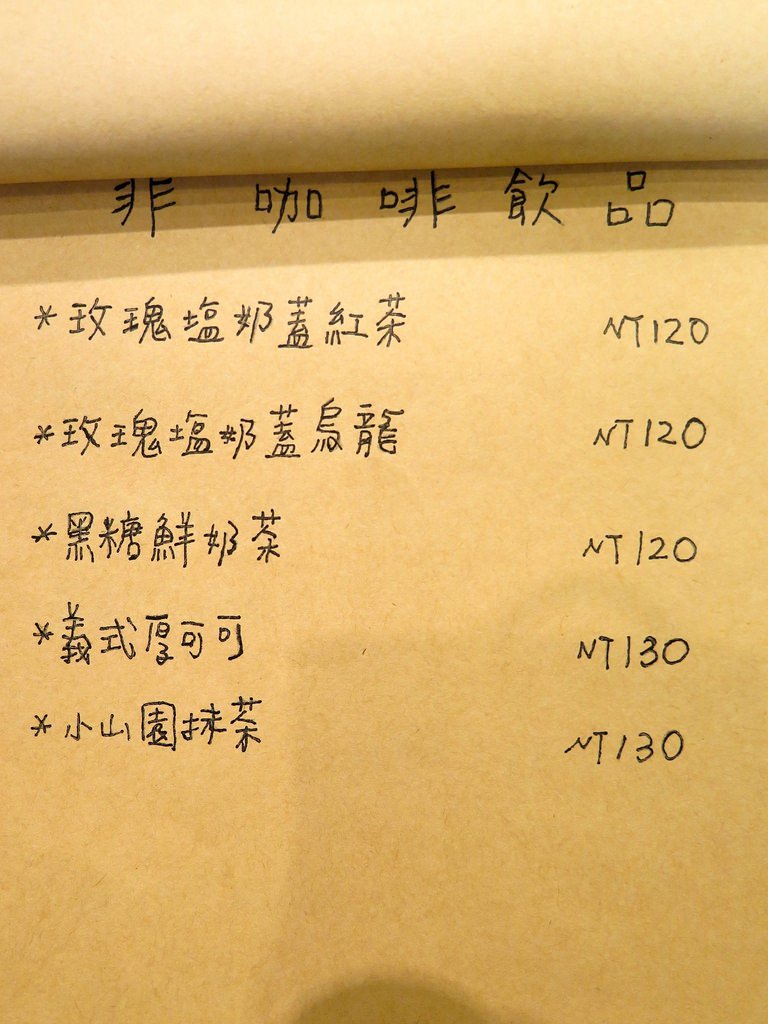 非咖啡飲品
*玫瑰塩奶蓋紅茶 NT120
*玫瑰塩奶蓋烏龍 NT120
*黑糖鮮奶茶 NT120
*義式厚可可 NT130
*小山園抹茶 NT130